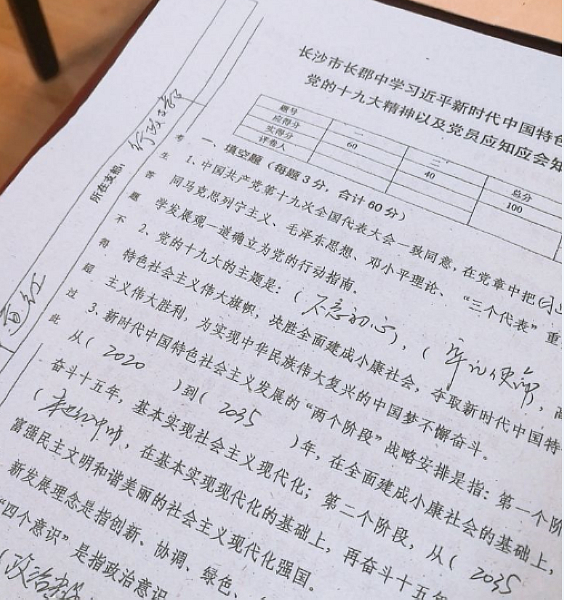 长沙市长郡中学习近平新时代中国特色
党的十九大精神以及党员应知应会知
题号 一 二 总分
应得分 60 40 100
实得分
评卷人
所在支部:
考生答题不得超过此
一、填空题（每题3分，合计60分）
1、中国共产党第十九次全国代表大会一致同意，在党章中把(习
同马克思列宁主义、毛泽东思想、邓小平理论、“三个代表”重
学发展观一道确立为党的行动指南。
2、党的十九大的主题是：（不忘初心），（牢记使命，高
特色社会主义伟大旗帜，决胜全面建成小康社会，夺取新时代中国特
主义伟大胜利，为实现中华民族伟大复兴的中国梦不懈奋斗。
3、新时代中国特色社会主义发展的“两个阶段”战略安排是指：第一个阶
从（2020）到（2035）年，在全面建成小康社会的基础上，
奋斗十五年，基本实现社会主义现代化；第二个阶段，从（2035
（本世纪中叶，在基本实现现代化的基础上，再奋斗十五年
富强民主文明和谐美丽的社会主义现代化强国。
新发展理念是指创新、协调、绿色、
“四个意识”是指政治意识